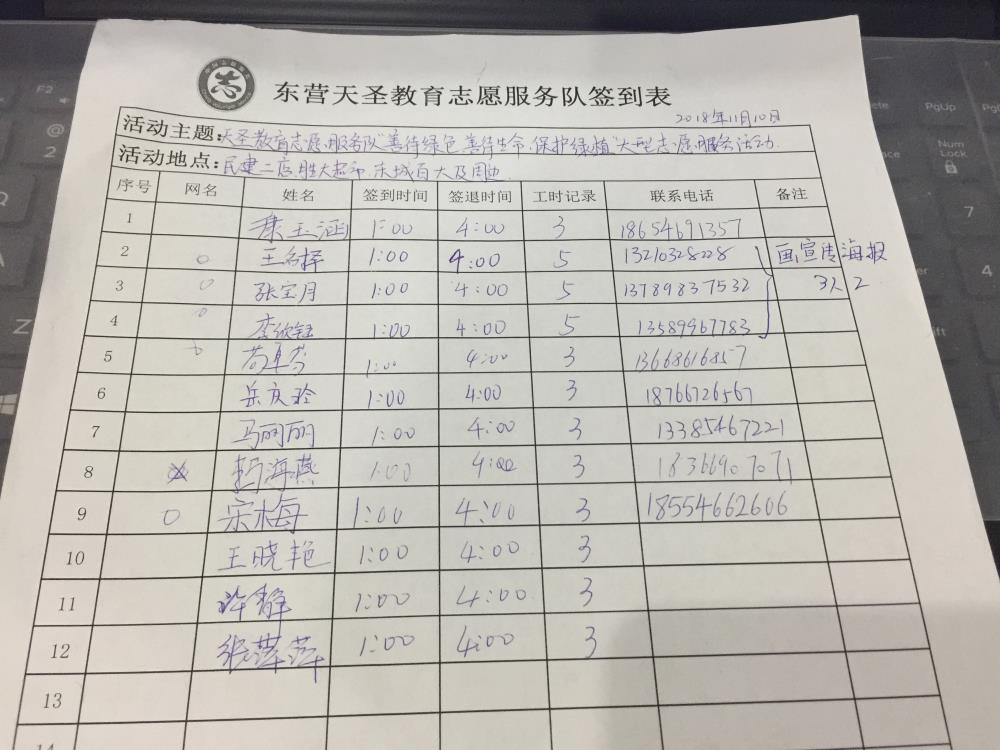 东营天圣教育志愿服务队签到表
2018年11月10日
活动主题：天圣教育志愿服务队"善待绿色 善待生命 保护绿植"大型志愿服务活动
活动地点：民建二店、胜大超市、东城百大及周边
序号 网名 姓名 签到时间 签退时间 工时记录 联系电话 备注
1 玉涵 1:00 4:00 3 18654691357
2 王 1:00 4:00 5 13210328228 画宣传海报
3 张宝月 1:00 4:00 5 13789837532 3人2
4 李欣钰 1:00 4:00 5 13589967783
5 1:00 4:00 3 13668616857
6 岳庆玲 1:00 4:00 3 18766726567
7 马丽丽 1:00 4:00 3 13385467221
8 海燕 1:00 4:00 3 18366907071
9 宋梅 1:00 4:00 3 18554662606
10 王晓艳 1:00 4:00 3
11 许静 1:00 4:00 3
12 张萍萍 1:00 4:00 3
13
14